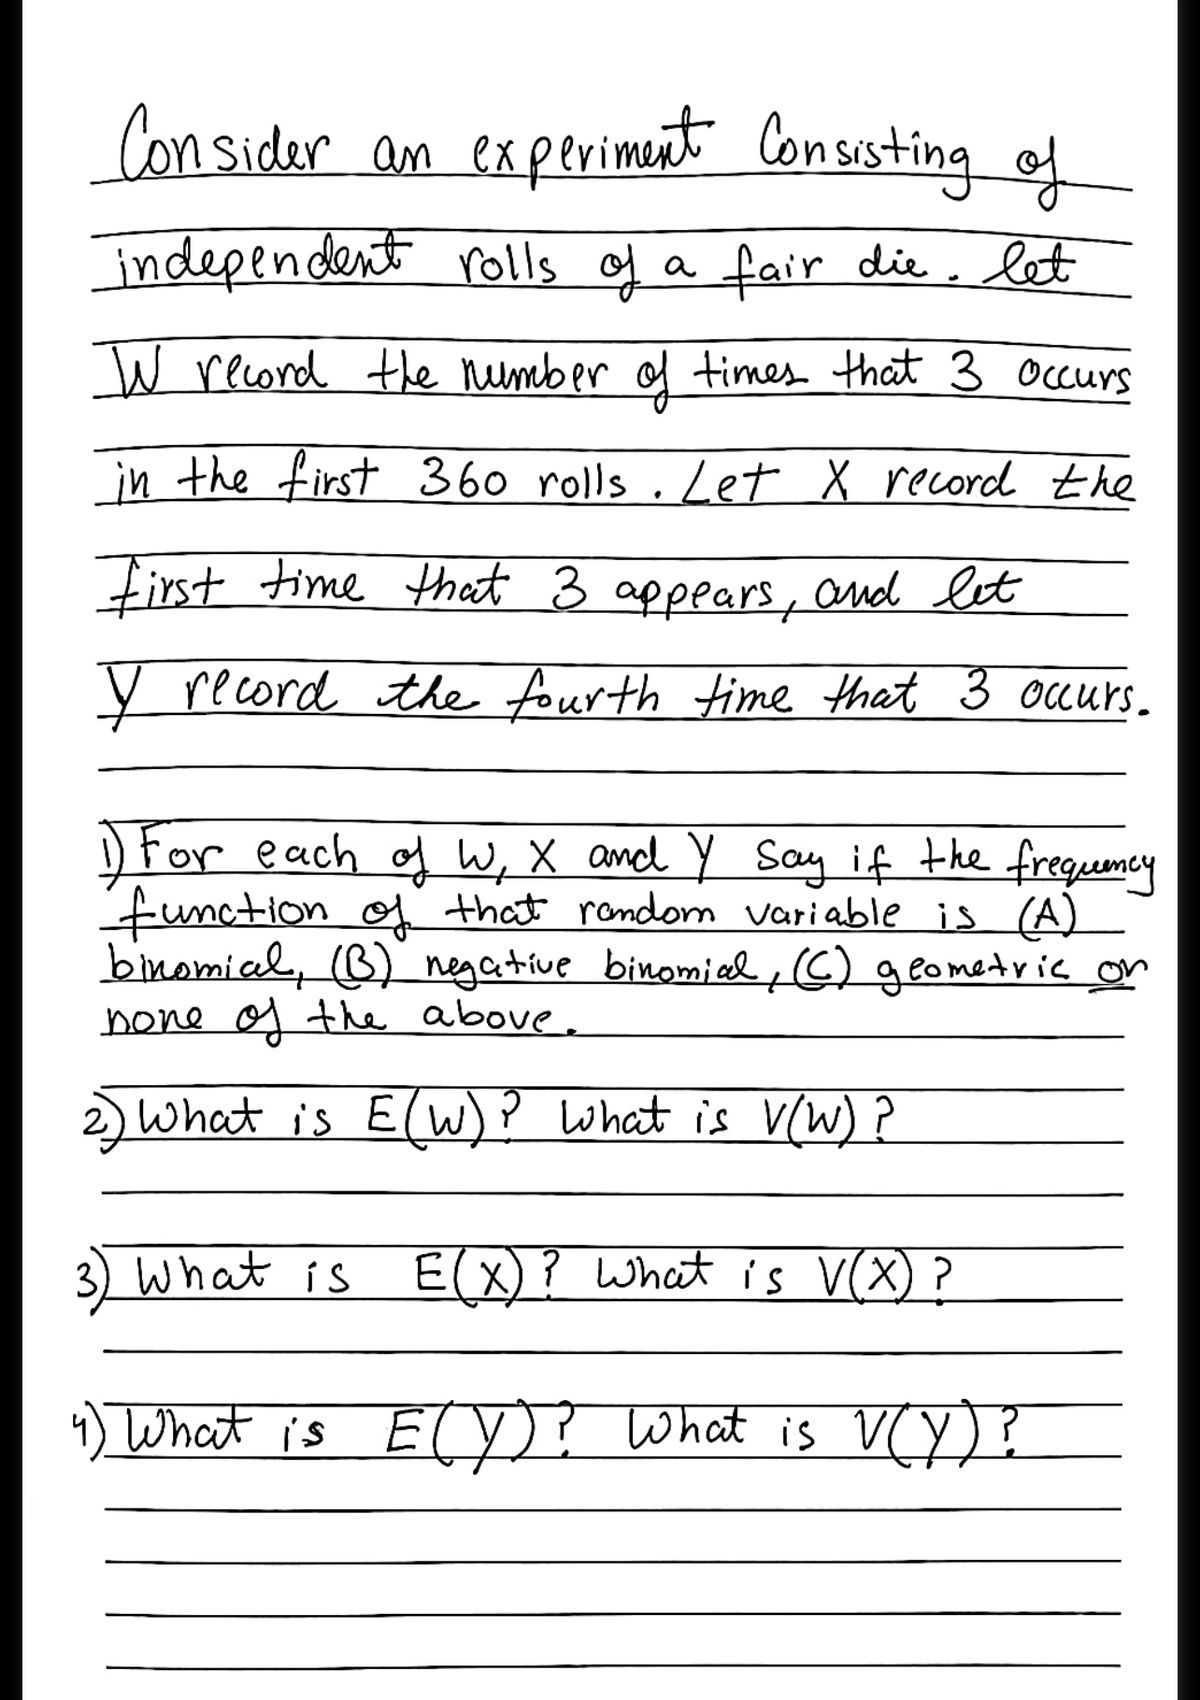 Consider an experiment Consisting of
independent rolls of a fair die. let
W record the number of times that 3 occurs
in the first 360 rolls. Let X record the
first time that 3 appears, and let
Y record the fourth time that 3 occurs.
1) For each of W, X and Y say if the frequency
function of that random variable is (A)
binomial, (B) negative binomial, (C) geometric or
none of the above.
2) What is E(W)? What is V(W)?
3) What is E(X)? What is V(X)?
4) What is E(Y)? What is V(Y)?